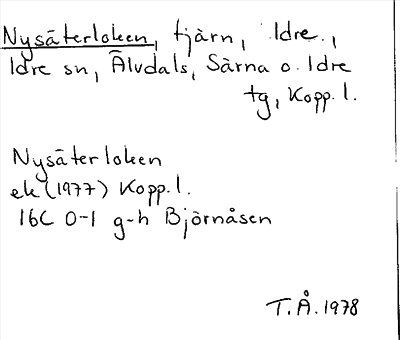 Nysäterloken, tjärn, Idre.,
Idre sn, Älvdals, Särna o. Idre
tg, Kopp. l.
Nysäterloken
ek (1977) Kopp. l.
16C 0-1 g-h Björnåsen
T.Å. 1978